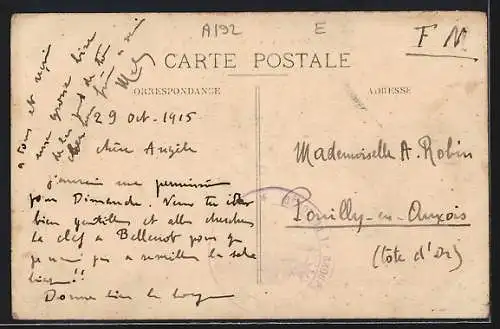 A192 E
F M
CARTE POSTALE
CORRESPONDANCE
ADRESSE
29 Oct. 1915
Chère Angèle
j'aurai une permission
pour Dimanche. Veux tu être
bien gentille et aller chercher
la clef à Bellenot pour que
je n'ai pas à réveiller la
Donne bien le
à tous et reçois
une grosse bise
Mademoiselle A. Robin
Pouilly-en-Auxois
(Côte d'Or)